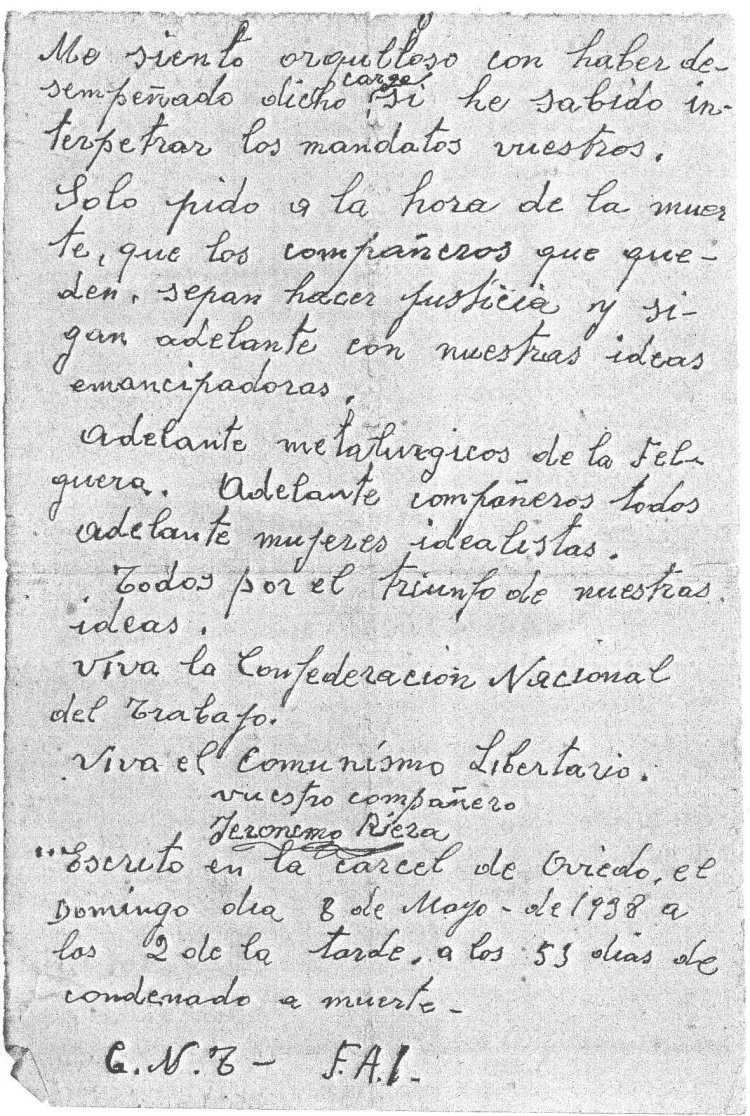 Me siento orgulloso con haber de-
sempeñado dicho cargo si he sabido in-
terpetrar los mandatos vuestros.
Solo pido a la hora de la muer
te, que los compañeros que que-
den, sepan hacer justicia y si-
gan adelante con nuestras ideas
emancipadoras.
Adelante metalurgicos de la Fel-
guera. Adelante compañeros todos
adelante mujeres idealistas.
Todos por el triunfo de nuestras
ideas.
Viva la Confederación Nacional
del Trabajo.
Viva el Comunísmo Libertario.
vuestro compañero
Jeronimo Riera
"Escrito en la carcel de Oviedo, el
Domingo dia 8 de Mayo - de 1938 a
las 2 de la tarde, a los 53 dias de
condenado a muerte -
C.N.T - F.A.I.